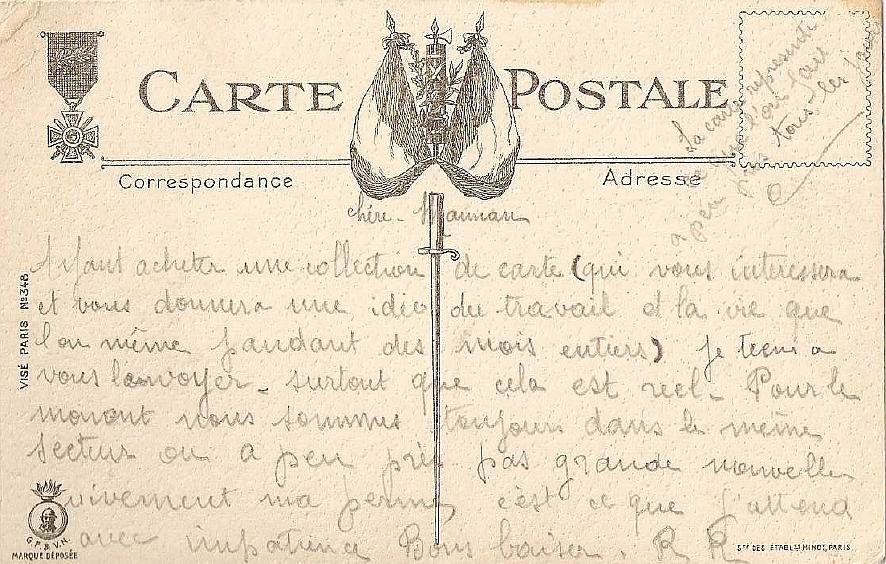 CARTE POSTALE
La carte représente
a peu près
tous les jours
Correspondance
Adresse
chère Maman
Ayant acheter une collection de carte (qui vous interessera
et vous donnera une idée du travail et la vie que
l'on même pandant des mois entiers) je tiens a
vous l'envoyer - surtout que cela est reel - Pour le
moment nous sommes toujours dans le même
secteur ou a peu près pas grande nouvelle
vivement ma perme c'est ce que j'attend
avec impatience Bons baiser. R R
VISÉ PARIS Nº 348
G.P. & V.N.
MARQUE DÉPOSÉE
Sté DES ÉTABLts MINOT, PARIS